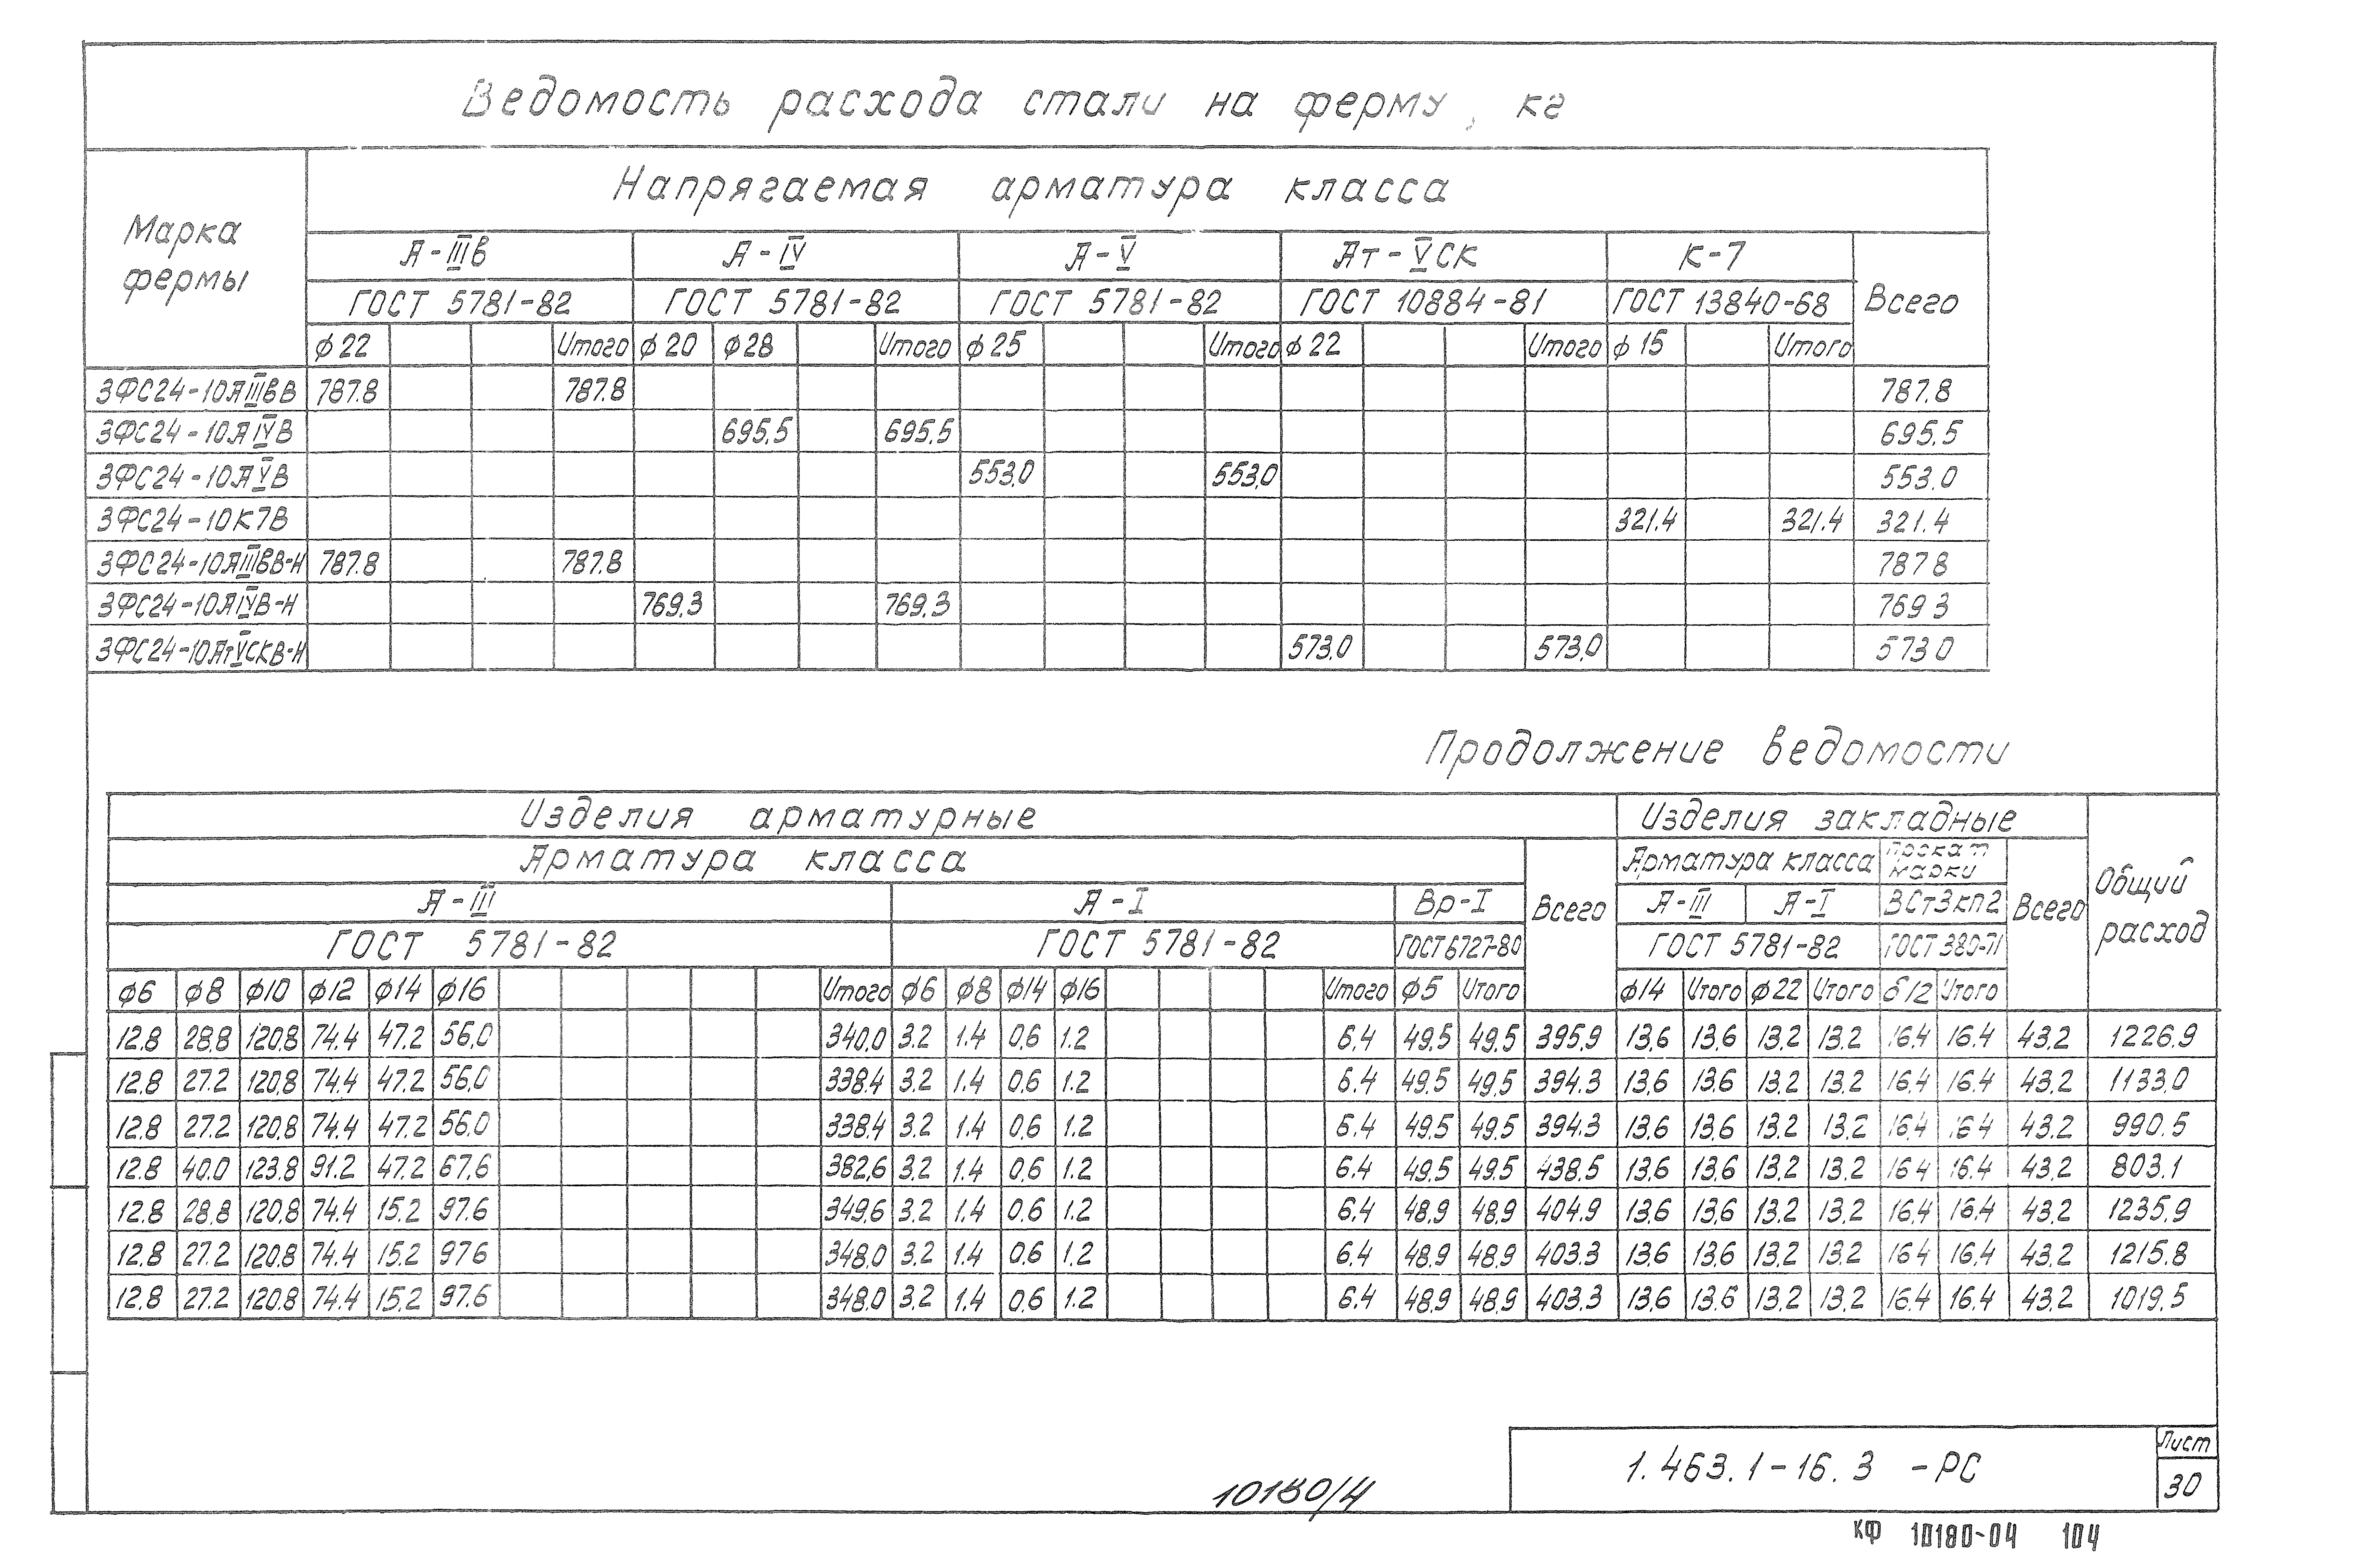 Ведомость расхода стали на ферму, кг
Марка фермы
Напрягаемая арматура класса
А-IIIв А-IV А-V Ат-VСК К-7 Всего
ГОСТ 5781-82 ГОСТ 5781-82 ГОСТ 5781-82 ГОСТ 10884-81 ГОСТ 13840-68
ф22 Итого ф20 ф28 Итого ф25 Итого ф22 Итого ф15 Итого
3ФС24-10АIIIвВ 787.8 787.8 787.8
3ФС24-10АIVВ 695.5 695.5 695.5
3ФС24-10АVВ 553.0 553.0 553.0
3ФС24-10К7В 321.4 321.4 321.4
3ФС24-10АIIIвВ-Н 787.8 787.8 787 8
3ФС24-10АIVВ-Н 769.3 769.3 769 3
3ФС24-10АтVСКВ-Н 573.0 573.0 573 0
Продолжение ведомости
Изделия арматурные Изделия закладные Общий расход
Арматура класса Всего Арматура класса Прокат марки Всего
А-III А-I Вр-I А-III А-I ВСт3кп2
ГОСТ 5781-82 ГОСТ 5781-82 ГОСТ 6727-80 ГОСТ 5781-82 ГОСТ 380-71
ф6 ф8 ф10 ф12 ф14 ф16 Итого ф6 ф8 ф14 ф16 Итого ф5 Итого ф14 Итого ф22 Итого δ12 Итого
12.8 28.8 120.8 74.4 47.2 56.0 340.0 3.2 1.4 0.6 1.2 6.4 49.5 49.5 395.9 13.6 13.6 13.2 13.2 16.4 16.4 43.2 1226.9
12.8 27.2 120.8 74.4 47.2 56.0 338.4 3.2 1.4 0.6 1.2 6.4 49.5 49.5 394.3 13.6 13.6 13.2 13.2 16.4 16.4 43.2 1133.0
12.8 27.2 120.8 74.4 47.2 56.0 338.4 3.2 1.4 0.6 1.2 6.4 49.5 49.5 394.3 13.6 13.6 13.2 13.2 16.4 16 4 43.2 990.5
12.8 40.0 123.8 91.2 47.2 67.6 382.6 3.2 1.4 0.6 1.2 6.4 49.5 49.5 438.5 13.6 13.6 13.2 13.2 16 4 16.4 43.2 803.1
12.8 28.8 120.8 74.4 15.2 97.6 349.6 3.2 1.4 0.6 1.2 6.4 48.9 48.9 404.9 13.6 13.6 13.2 13.2 16.4 16.4 43.2 1235.9
12.8 27.2 120.8 74.4 15.2 97 6 348.0 3.2 1.4 0.6 1.2 6.4 48.9 48.9 403.3 13.6 13.6 13.2 13.2 16 4 16.4 43.2 1215.8
12.8 27.2 120.8 74.4 15.2 97.6 348.0 3.2 1.4 0.6 1.2 6.4 48.9 48.9 403.3 13.6 13.6 13.2 13.2 16.4 16.4 43.2 1019.5
1.463.1-16.3 -РС
Лист
30
10180/4
КФ 10180-04 104